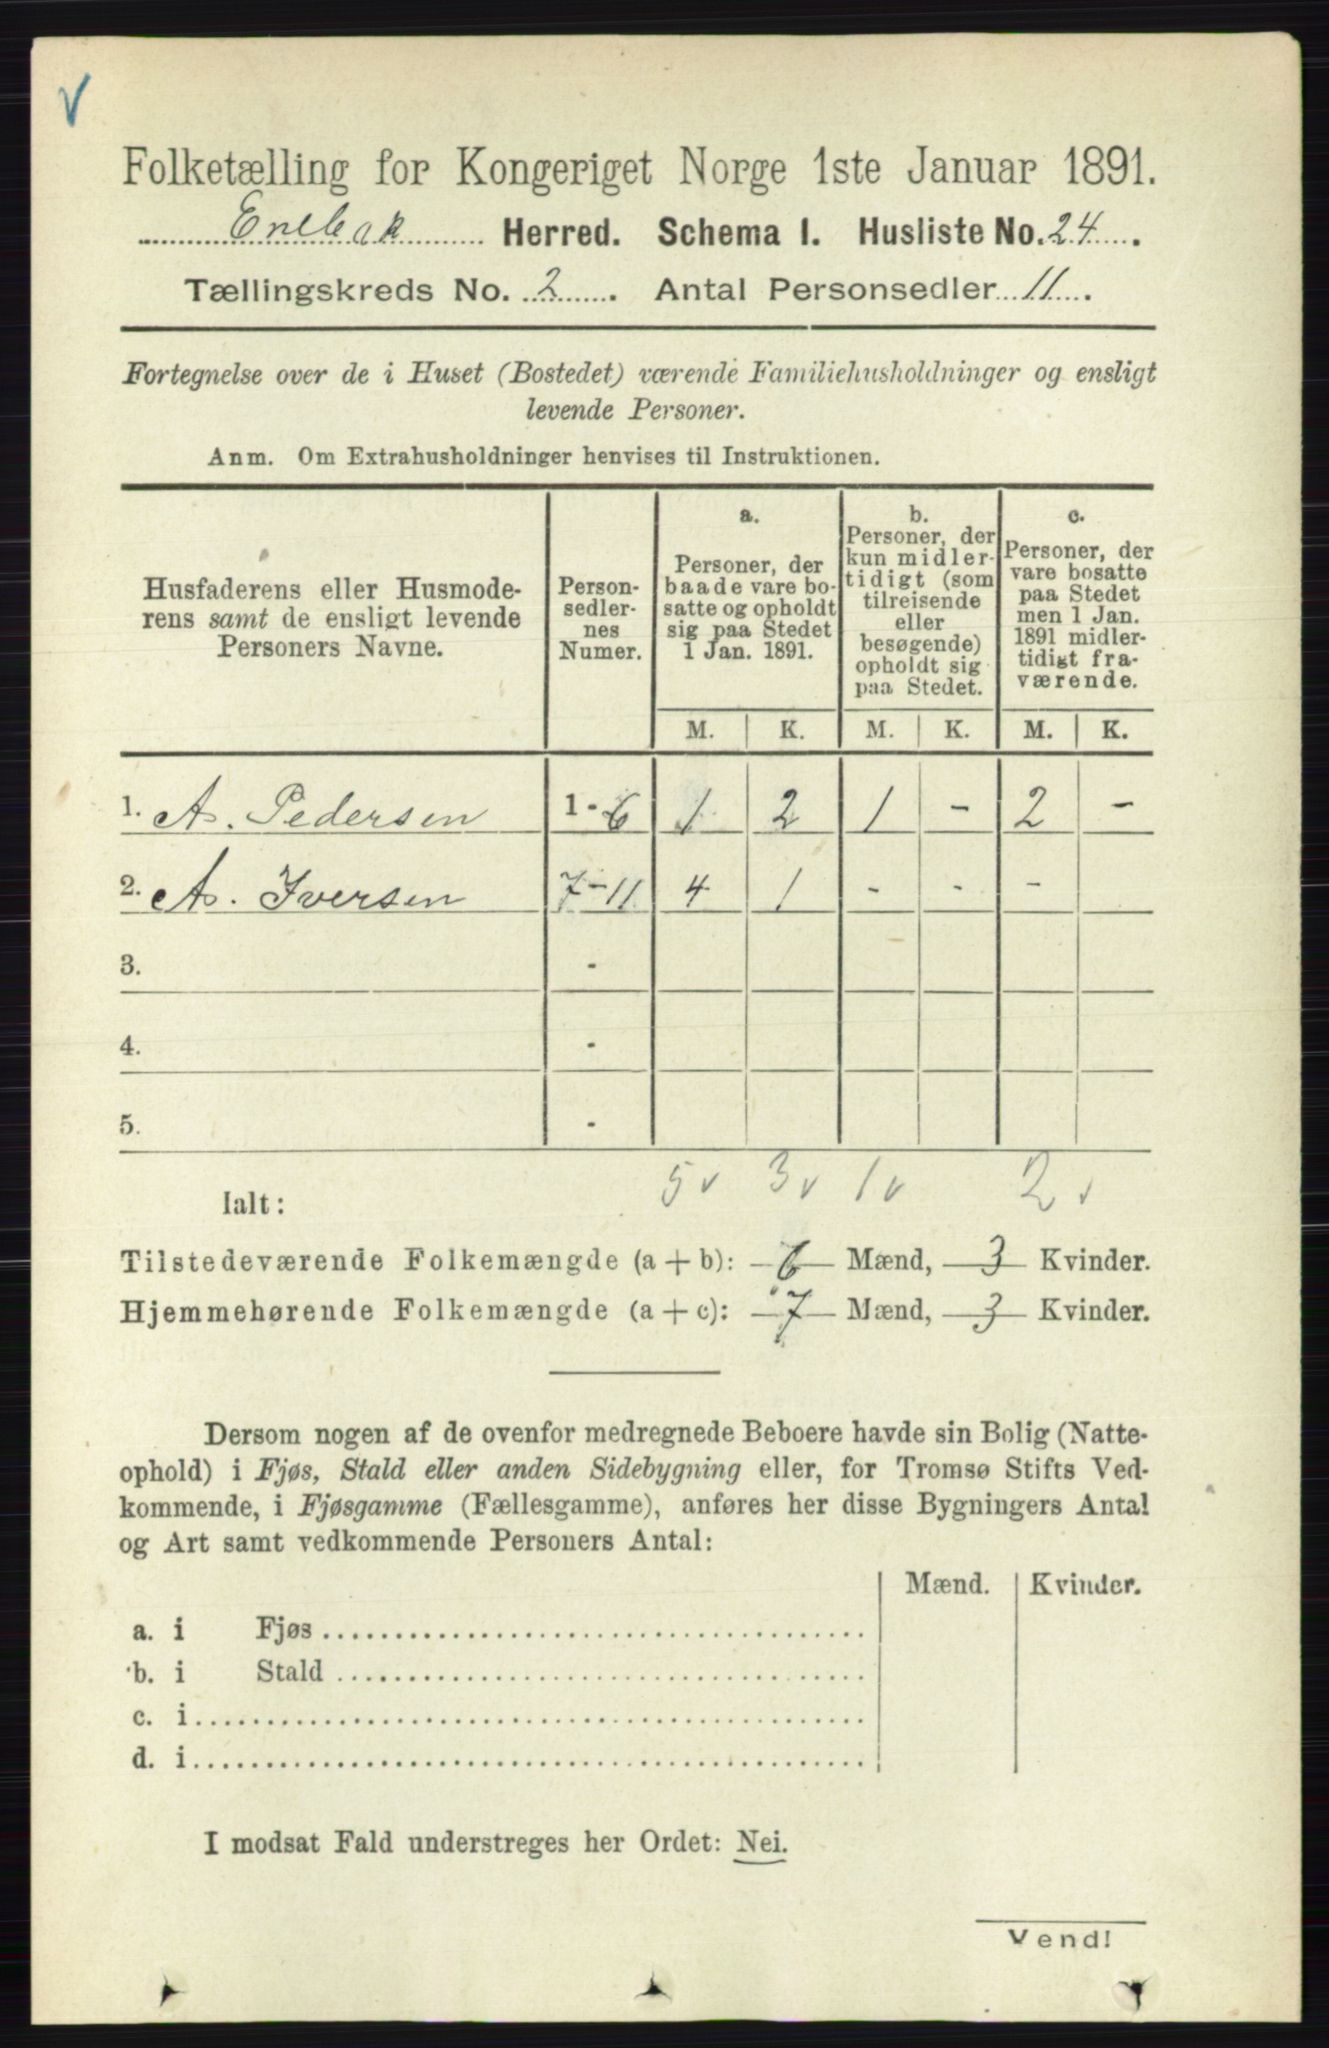 V
Folketælling for Kongeriget Norge 1ste Januar 1891.
Enebak Herred. Schema I. Husliste No. 24.
Tællingskreds No. 2. Antal Personsedler 11.
Fortegnelse over de i Huset (Bostedet) værende Familiehusholdninger og ensligt
levende Personer.
Anm. Om Extrahusholdninger henvises til Instruktionen.
Husfaderens eller Husmode-
rens samt de ensligt levende
Personers Navne.
Person-
sedler-
nes
Numer.
a.
Personer, der
baade vare bo-
satte og opholdt
sig paa Stedet
1 Jan. 1891.
b.
Personer, der
kun midler-
tidigt (som
tilreisende
eller
besøgende)
opholdt sig
paa Stedet.
c.
Personer, der
vare bosatte
paa Stedet
men 1 Jan.
1891 midler-
tidigt fra-
værende.
M. K. M. K. M. K.
1. A. Pedersen 1-6 1 2 1 - 2 -
2. A. Iversen 7-11 4 1 - - -
3. -
4. -
5. -
Ialt: 5 v 3 v 1 v 2 v
Tilstedeværende Folkemængde (a + b): 6 Mænd, 3 Kvinder.
Hjemmehørende Folkemængde (a + c): 7 Mænd, 3 Kvinder.
Dersom nogen af de ovenfor medregnede Beboere havde sin Bolig (Natte-
ophold) i Fjøs, Stald eller anden Sidebygning eller, for Tromsø Stifts Ved-
kommende, i Fjøsgamme (Fællesgamme), anføres her disse Bygningers Antal
og Art samt vedkommende Personers Antal:
Mænd. Kvinder.
a. i Fjøs
b. i Stald
c. i
d. i
I modsat Fald understreges her Ordet: Nei.
Vend!